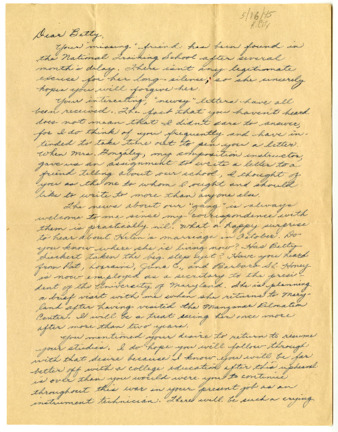 Dear Betty,
Your "missing" friend has been found in
the National Training School after several
month's delay. There isn't any legitimate
excuse for her long silence, so she sincerely
hopes you will forgive her.
Your interesting, "newsy" letters have all
been received. The fact that you haven't heard
does not mean that I didn't care to answer,
for I do think of you frequently and have in-
tended to take time out to pen you a letter.
When Mrs. my composition instructor,
gave us an assignment to write a letter to a
friend telling about our school, I thought of
you as the one to whom I ought and should
like to write to more than anyone else.
The news about our "gang" is always
welcome to me since my correspondence with
them is practically nil. What a happy surprise
to hear about Helen's marriage in October. Do
you know where she is living now? Has Betty
taken the big step yet? Have you heard
from Pat, and
is now employed as a secretary to the presi-
dent of the University of Maryland. She is planning
a brief visit with me when she returns to Mary-
land after having visited the Manzanar Relocation
Center. It will be a treat seeing her once more
after more than two years.
You mentioned your desire to return to resume
your studies. I do hope you will follow through
with that desire because I know you will be far
better off with a college education after this upheaval
is over than you would were you to continue
throughout this war in your present job as an
instrument technician. There will be such a crying